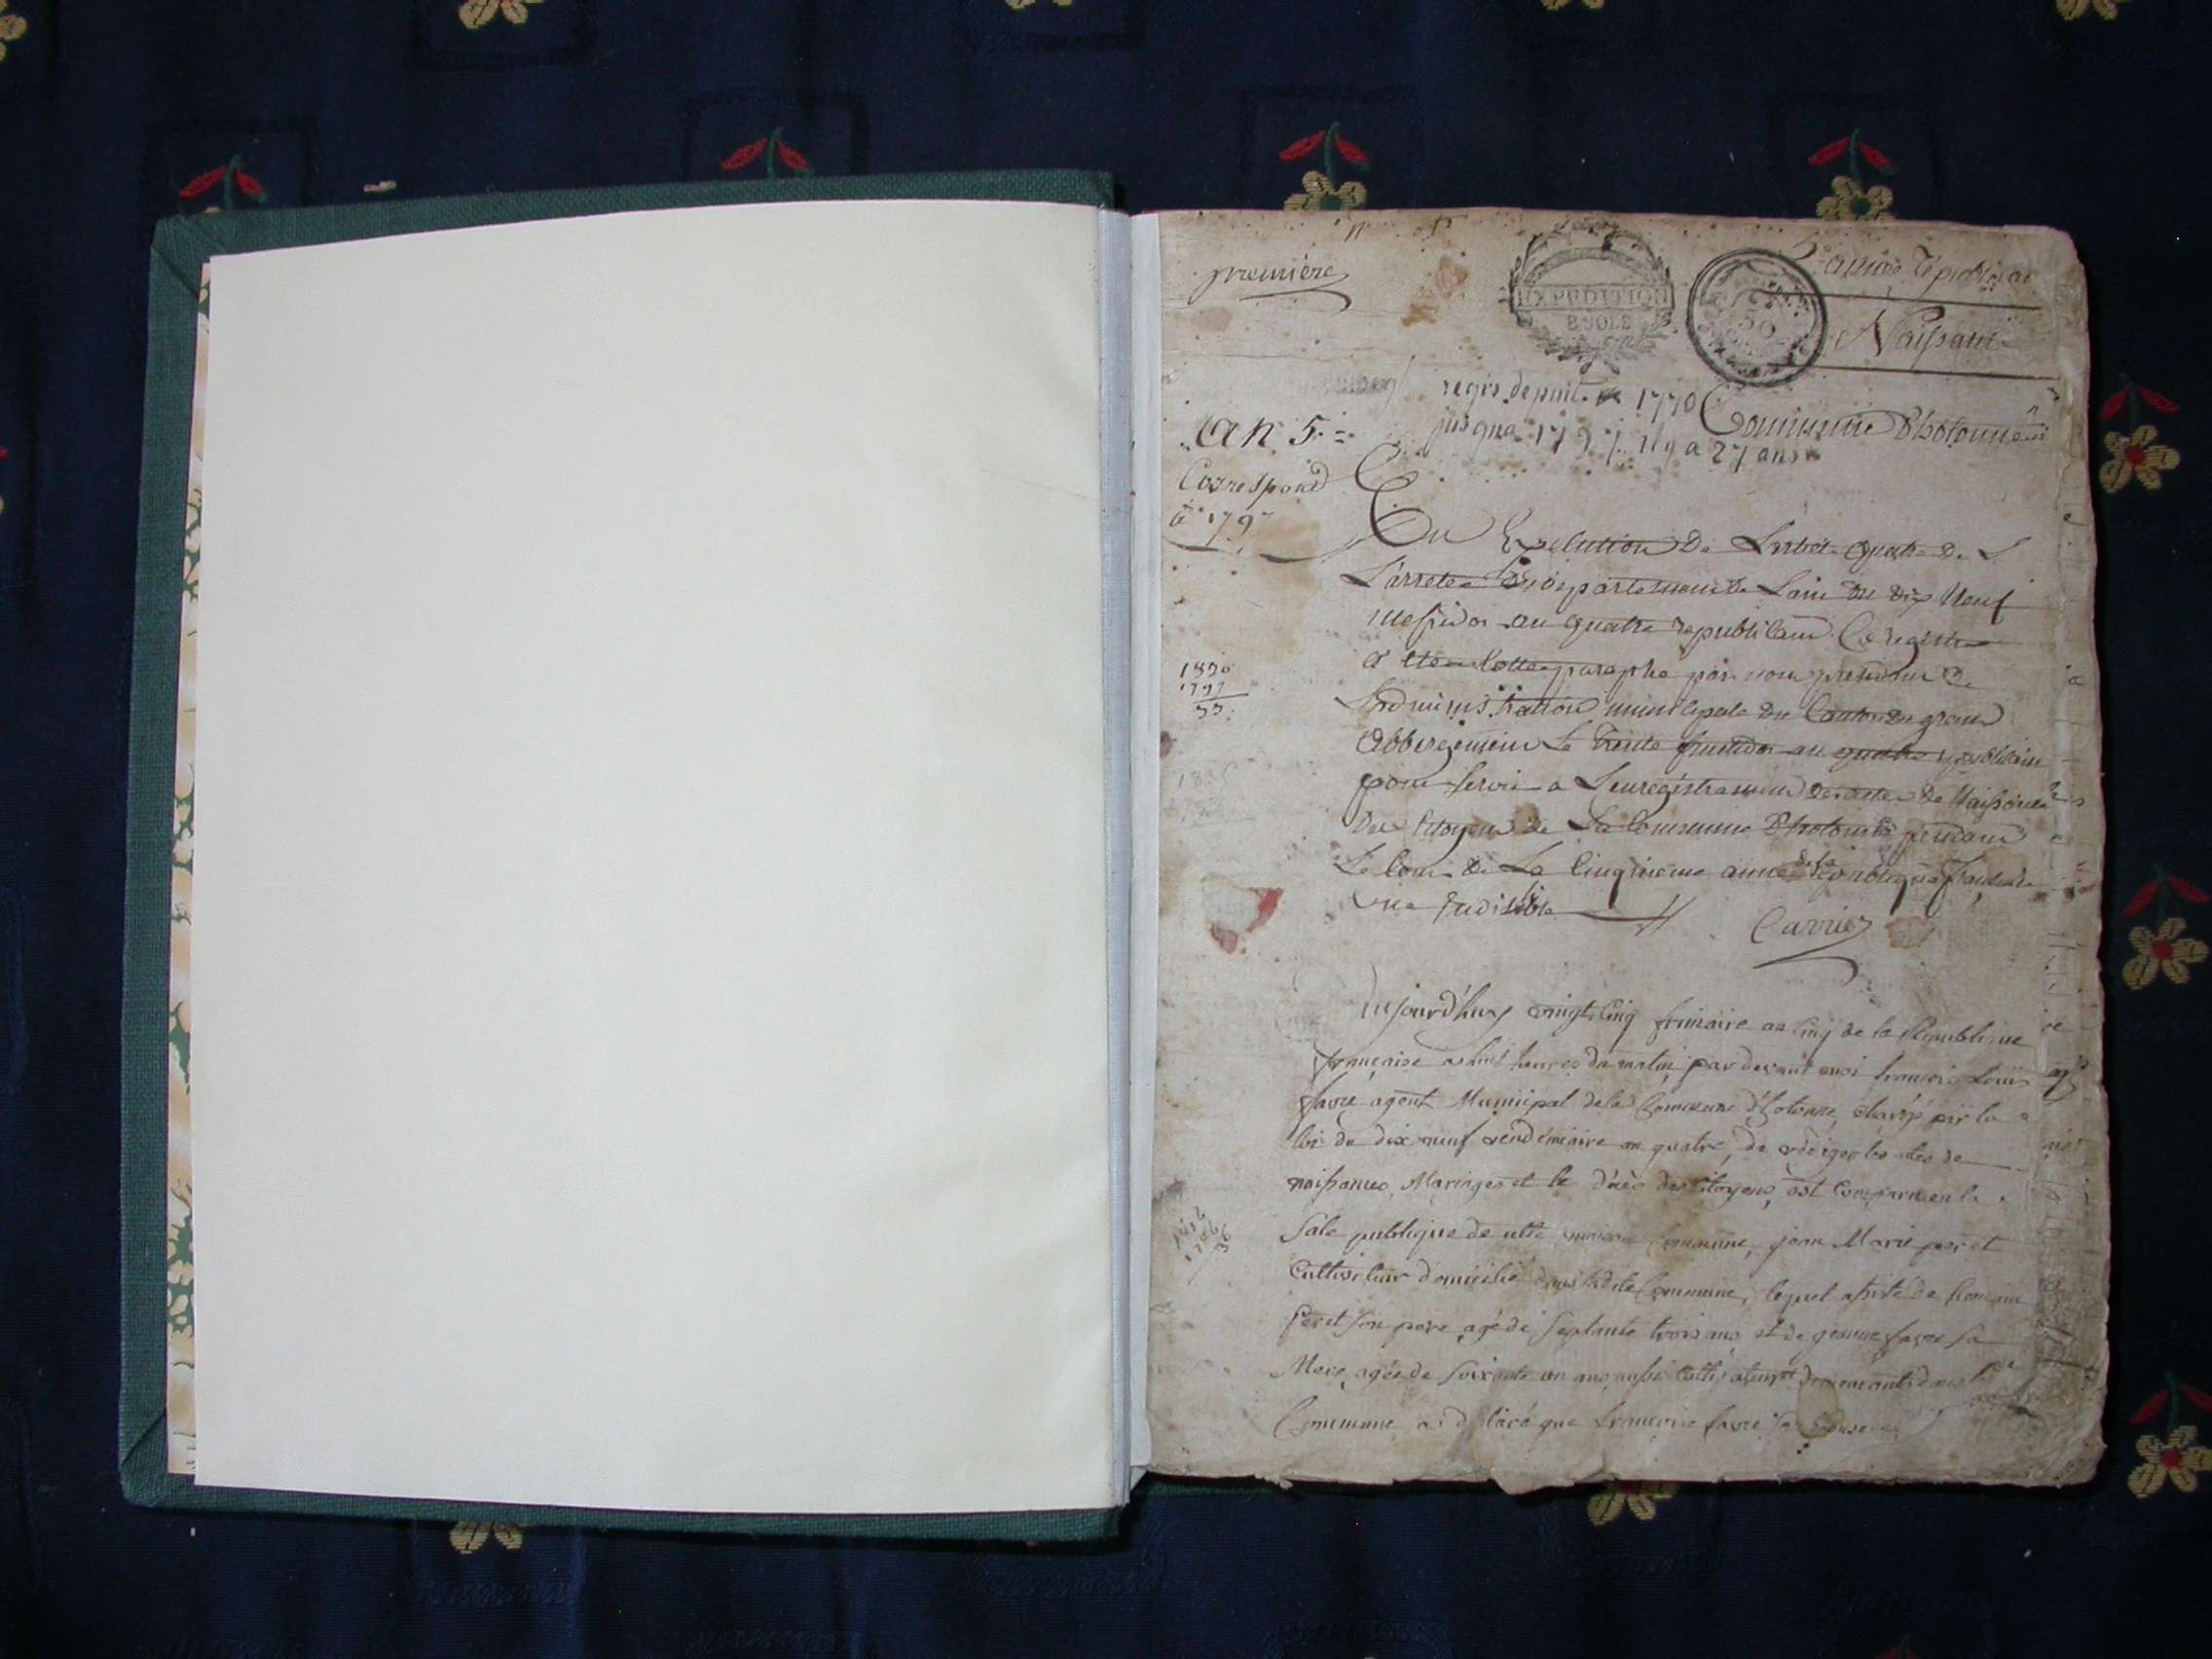 première
EXPEDITION
8 SOLS
année républicai
Naissanc
regis. depuit 1770
jusqua 1797 il y a 27 ans
Commune d'hotonne
an 5.=
Correspond
à 1797
En Execution de Larticle quatre de L
L'arrete du Departement de Lain du dix Neuf
messidor an quatre republicain Ce registre
a ete Cotte paraphe par nous president de
Ladministration municipale du Canton du grand
Abbergement Le trente fructidor an quatre republicain
pour servir a Lenregistrement des actes de Naissance
des Citoyens de La Commune d'hotonne pendant
Le Cour de La Cinquieme année de la republique francaise
une Indivisible
Carrier
1830
1797
33
Aujourd'huy vingt cinq frimaire an cinq de la Republique
française a huit heures du matin, par devant moi francois Louis
favre agent Municipal de la Commune d'hotonne, chargé par la
loi du dix neuf vendémiaire an quatre, de rediger les actes de
naissances, Mariages et le décès des Citoyens, est Comparu en la
Sale publique de cette Commune, jean Marie peret
Cultivateur domicilié dans ladite Commune, lequel assisté de
Peret son pere agé de septante trois ans et de jeanne favre sa
Mere, agée de soixante un ans aussi demeurants dans la
Commune, a déclaré que francoise favre sa epouse